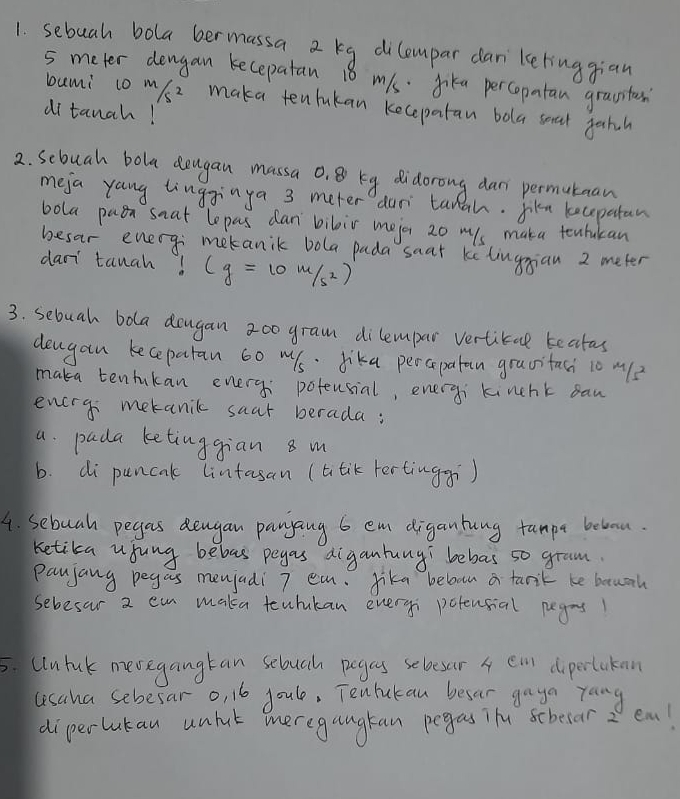 1. Sebuah bola bermassa 2 kg dilempar dari ketinggian
5 meter dengan kecepatan 18 m/s. Jika percepatan gravitasi
bumi 10 m/s² maka tentukan kecepatan bola saat jatuh
di tanah !
2. Sebuah bola dengan massa 0,8 kg didorong dari permukaan
meja yang tingginya 3 meter dari tanah. Jika kecepatan
bola pada saat lepas dari bibir meja 20 m/s maka tentukan
besar energi mekanik bola pada saat ketinggian 2 meter
dari tanah ! (g = 10 m/s²)
3. Sebuah bola dengan 200 gram dilempar vertikal keatas
dengan kecepatan 60 m/s. Jika percepatan gravitasi 10 m/s²
maka tentukan energi potensial, energi kinetik dan
energi mekanik saat berada :
a. pada ketinggian 8 m
b. di puncak lintasan (titik tertinggi)
4. Sebuah pegas dengan panjang 6 cm digantung tanpa beban.
Ketika ujung bebas pegas digantungi bebas 50 gram.
Panjang pegas menjadi 7 cm. Jika beban di tarik ke bawah
sebesar 2 cm maka tentukan energi potensial pegas !
5. Untuk meregangkan sebuah pegas sebesar 4 cm diperlukan
usaha sebesar 0,16 joule. Tentukan besar gaya yang
diperlukan untuk meregangkan pegas itu sebesar 2 cm!